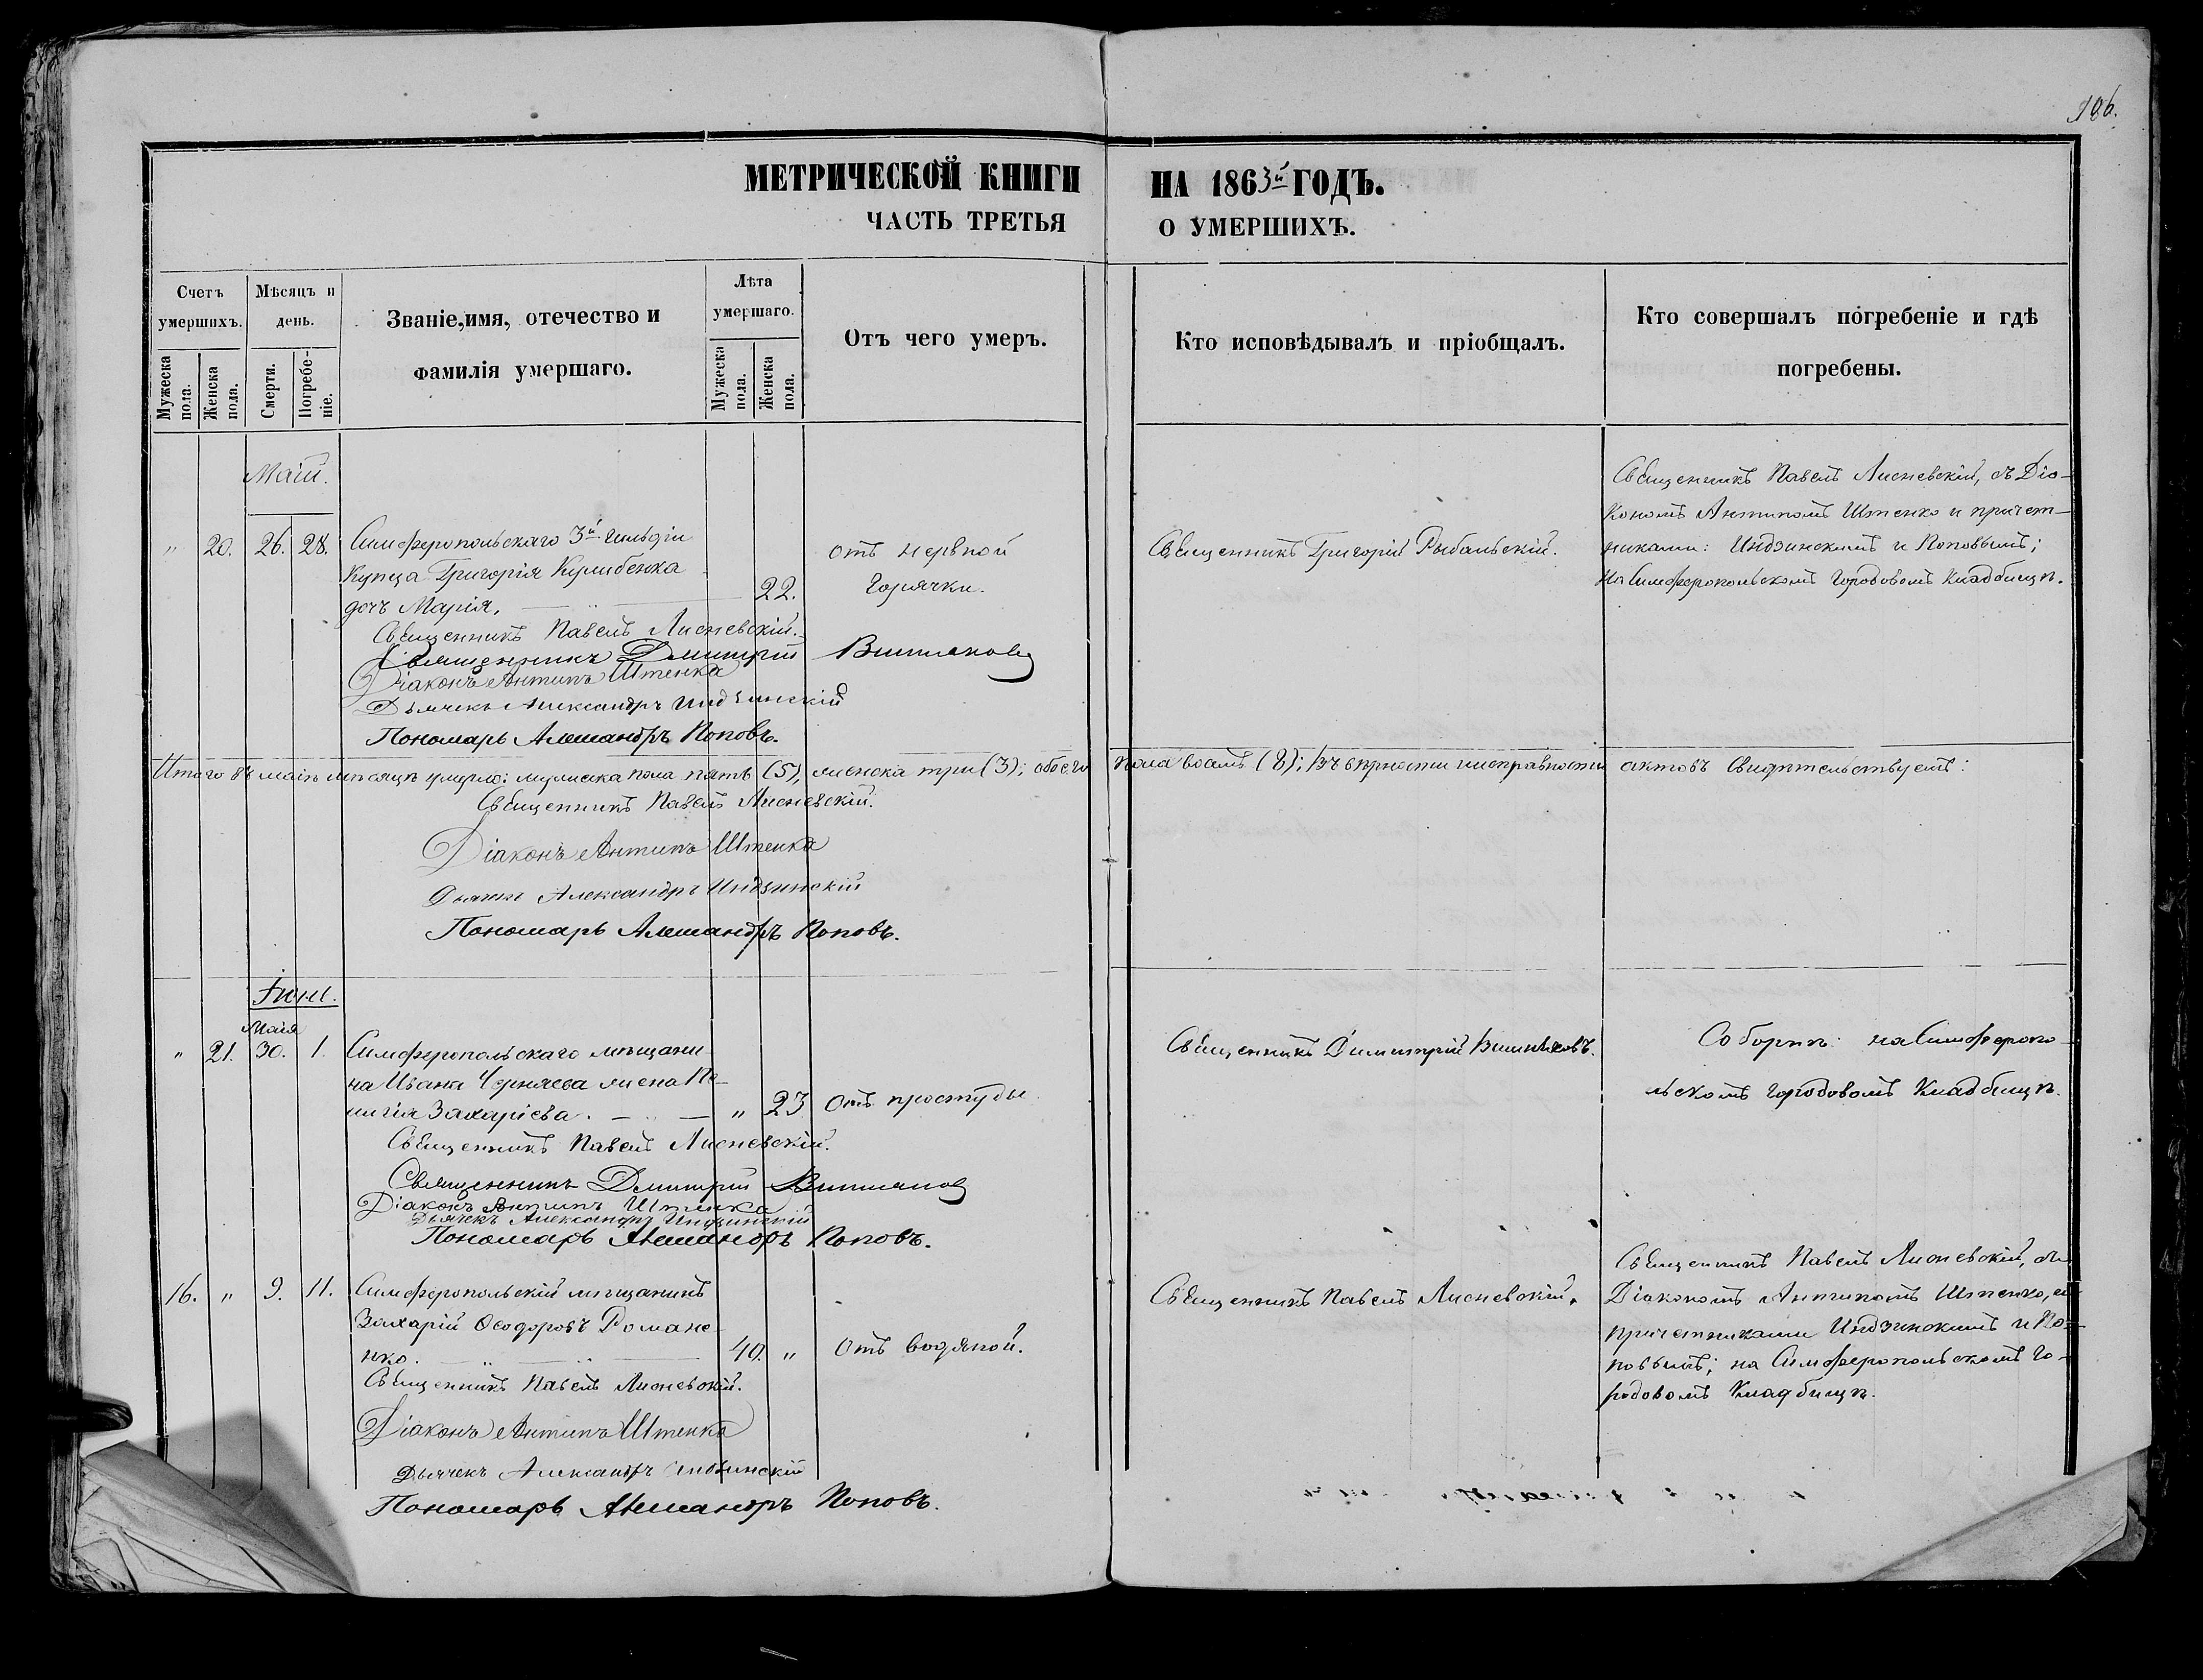 186.
МЕТРИЧЕСКОЙ КНИГИ НА 1863й ГОДЪ.
ЧАСТЬ ТРЕТЬЯ О УМЕРШИХЪ.
Счетъ умершихъ.
Мужеска пола.
Женска пола.
Мѣсяцъ и день.
Смерти.
Погребеніе.
Званіе, имя, отечество и
фамилія умершаго.
Лѣта умершаго.
Мужеска пола.
Женска пола.
Отъ чего умеръ.
Кто исповѣдывалъ и пріобщалъ.
Кто совершалъ погребеніе и гдѣ
погребены.
Маій.
" 20. 26. 28.
Симферопольскаго 3й гильдіи
Купца Григорія Кулибенка
дочь Марія. 22.
отъ нервной
Горячки.
Священникъ Григорій Рыбальскій.
Священникъ Павелъ Лисневскій, съ Діа-
кономъ Антипомъ Штенко и причет-
никами: Индзинскимъ и Поповымъ;
на Симферопольскомъ Городовомъ Кладбищѣ.
Священникъ Павелъ Лисневскій.
Священникъ Дмитрій
Діаконъ Антипъ Штенка
Дьячекъ Александръ Индзинскій
Пономарь Александръ Поповъ.
Итого въ маіѣ мѣсяцѣ умерло: мужеска пола пять (5), женска три (3); обоего пола восемь (8); Въ вѣрности и исправности актовъ Свидѣтельствуемъ:
Священникъ Павелъ Лисневскій.
Діаконъ Антипъ Штенка
Дьячекъ Александръ Индзинскій
Пономарь Александръ Поповъ.
Іюнь.
Маія
" 21. 30. 1.
Симферопольскаго мѣщани-
на Ивана Черняева жена Пе-
лагія Захаріева. " 23
Отъ простуды
Священникъ Димитрій
Соборнѣ: на Симферопо-
льскомъ городовомъ Кладбищѣ.
Священникъ Павелъ Лисневскій.
Священникъ Дмитрій
Діаконъ Антипъ Штенка
Дьячекъ Александръ Индзинскій
Пономарь Александръ Поповъ.
16. " 9. 11.
Симферопольскій мѣщанинъ
Захарій Ѳеодоровъ Романе-
нко. 40. "
Отъ водяной.
Священникъ Павелъ Лисневскій.
Священникъ Павелъ Лисневскій, съ
Діакономъ Антипомъ Штенко, и
причетниками Индзинскимъ и По-
повымъ; на Симферопольскомъ го-
родовомъ Кладбищѣ.
Священникъ Павелъ Лисневскій.
Діаконъ Антипъ Штенка
Дьячекъ Александръ Индзинскій
Пономарь Александръ Поповъ.